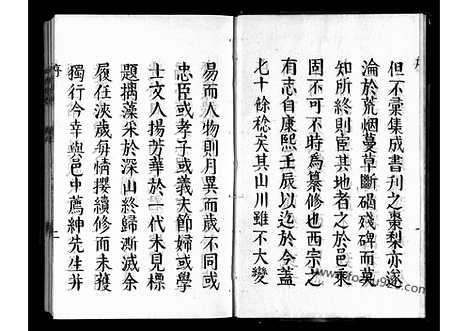 序
但不彙集成書刊之棗梨亦遂
淪於荒烟蔓草斷碣殘碑而莫
知所終則宦其地者之於邑乗
固不可不時為纂修也西宗之
有志自康熙壬辰以迄於今蓋
七十餘稔矣其山川雖不大變
易而人物則月異而歲不同或
忠臣或孝子或義夫節婦或學
士文人揚芳華於一代未見標
題摛藻采於深山終歸澌滅余
履任浹歲每情撄續修而未獲
獨行今幸與邑中薦紳先生并
序